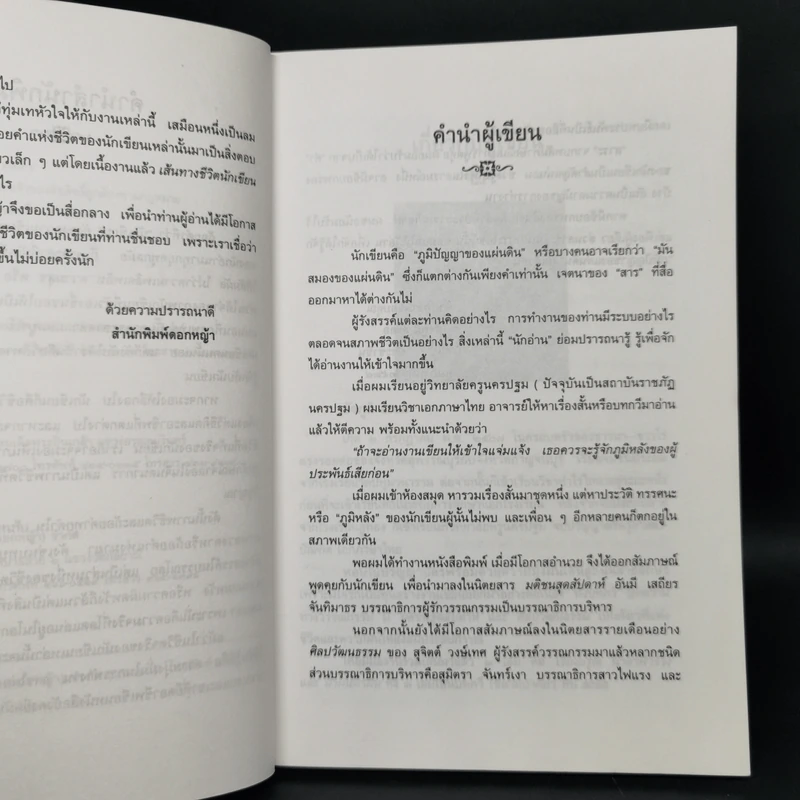 ไป
ทุ่มเทหัวใจให้กับงานเหล่านี้ เสมือนหนึ่งเป็นลม
อยคำแห่งชีวิตของนักเขียนเหล่านั้นมาเป็นสิ่งตอบ
วเล็ก ๆ แต่โดยเนื้องานแล้ว เส้นทางชีวิตนักเขียน
ไร
ญ้าจึงขอเป็นสื่อกลาง เพื่อนำท่านผู้อ่านได้มีโอกาส
ชีวิตของนักเขียนที่ท่านชื่นชอบ เพราะเราเชื่อว่า
ขึ้นไม่บ่อยครั้งนัก
ด้วยความปรารถนาดี
สำนักพิมพ์ดอกหญ้า
คำนำผู้เขียน
นักเขียนคือ “ภูมิปัญญาของแผ่นดิน” หรือบางคนอาจเรียกว่า “มัน
สมองของแผ่นดิน” ซึ่งก็แตกต่างกันเพียงคำเท่านั้น เจตนาของ “สาร” ที่สื่อ
ออกมาหาได้ต่างกันไม่
ผู้รังสรรค์แต่ละท่านคิดอย่างไร การทำงานของท่านมีระบบอย่างไร
ตลอดจนสภาพชีวิตเป็นอย่างไร สิ่งเหล่านี้ “นักอ่าน” ย่อมปรารถนารู้ รู้เพื่อจัก
ได้อ่านงานให้เข้าใจมากขึ้น
เมื่อผมเรียนอยู่วิทยาลัยครูนครปฐม ( ปัจจุบันเป็นสถาบันราชภัฏ
นครปฐม ) ผมเรียนวิชาเอกภาษาไทย อาจารย์ให้หาเรื่องสั้นหรือบทกวีมาอ่าน
แล้วให้ตีความ พร้อมทั้งแนะนำด้วยว่า
“ถ้าจะอ่านงานเขียนให้เข้าใจแจ่มแจ้ง เธอควรจะรู้จักภูมิหลังของผู้
ประพันธ์เสียก่อน”
เมื่อผมเข้าห้องสมุด หารวมเรื่องสั้นมาชุดหนึ่ง แต่หาประวัติ ทรรศนะ
หรือ “ภูมิหลัง” ของนักเขียนผู้นั้นไม่พบ และเพื่อน ๆ อีกหลายคนก็ตกอยู่ใน
สภาพเดียวกัน
พอผมได้ทำงานหนังสือพิมพ์ เมื่อมีโอกาสอำนวย จึงได้ออกสัมภาษณ์
พูดคุยกับนักเขียน เพื่อนำมาลงในนิตยสาร มติชนสุดสัปดาห์ อันมี เสถียร
จันทิมาธร บรรณาธิการผู้รักวรรณกรรมเป็นบรรณาธิการบริหาร
นอกจากนั้นยังได้มีโอกาสสัมภาษณ์ลงในนิตยสารรายเดือนอย่าง
ศิลปวัฒนธรรม ของ สุจิตต์ วงษ์เทศ ผู้รังสรรค์วรรณกรรมมาแล้วหลากชนิด
ส่วนบรรณาธิการบริหารคือสุมิตรา จันทร์เงา บรรณาธิการสาวไฟแรง และ